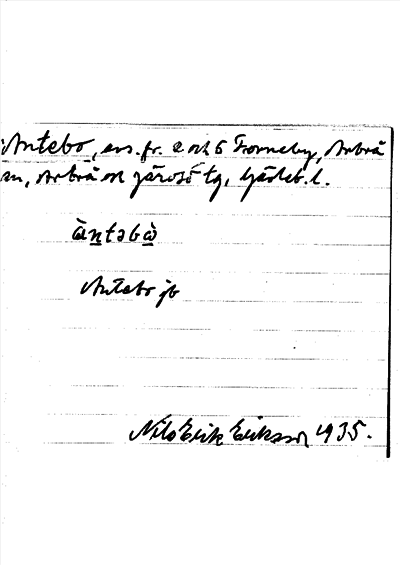 Antebo, ens. fr. 2 och 6 Forneby, Arbrå
sn, Arbrå och Järvsö tg, Gävleb. l.
àntəbὼ
Antebo jb
Nils Erik Eriksson 1935.